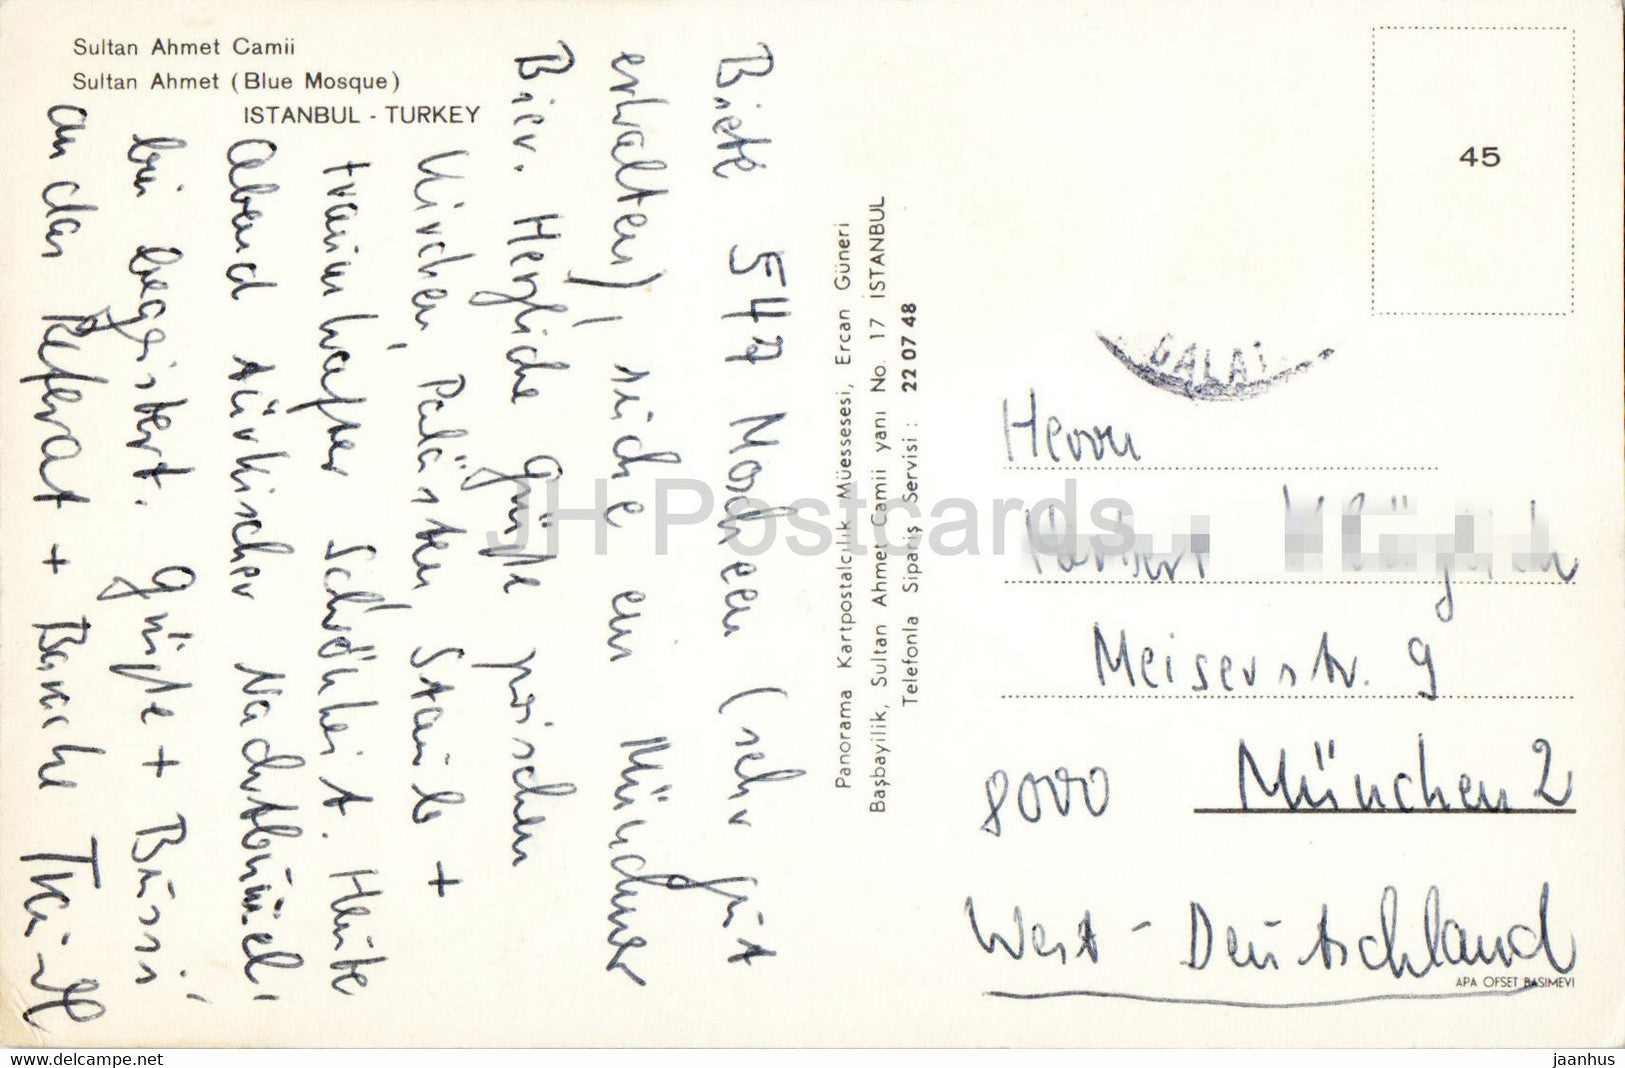 Sultan Ahmet Camii
Sultan Ahmet (Blue Mosque)
ISTANBUL - TURKEY
Biete 547 Moscheen (sehr gut
erhalten), suche ein Münchner
Bier. Herzliche Grüße zwischen
Kirchen, Palästen, Staub +
traumhafter Schönheit. Heute
Abend türkischer Nachtbummel.
bin begeistert. Grüße + Bussi
an das Referat +
Panorama Kartpostalcılık Müessesesi, Ercan Güneri
Başbayilik, Sultan Ahmet Camii yanı No. 17 ISTANBUL
Telefonla Sipariş Servisi : 22 07 48
45
GALAT
Herrn
Meiserstr. 9
8000 München 2
West-Deutschland
APA OFSET BASIMEVI
JH Postcards
delcampe.net
jaanhus